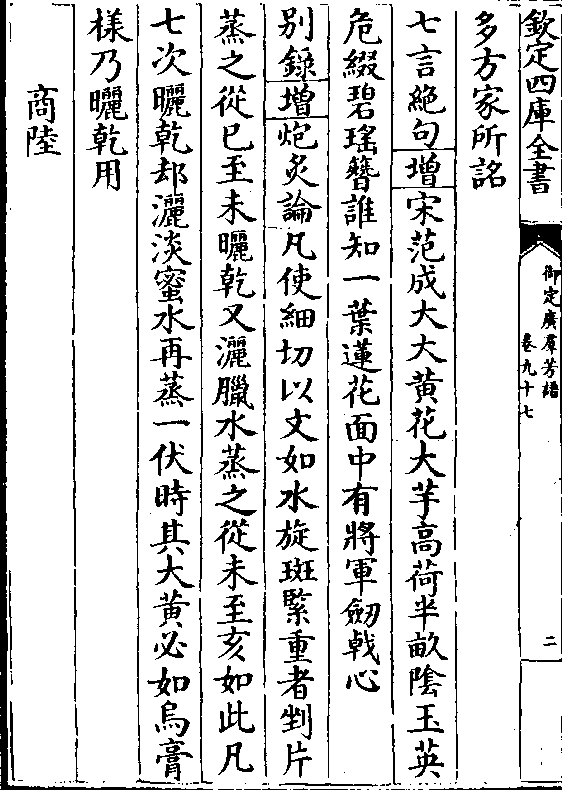 欽定四庫全書
御定廣羣芳譜
卷九十七
二
多方家所詺
七言絶句增宋范成大大黄花大芋高荷半畝隂玉英
危綴碧瑤簪誰知一葉蓮花面中有將軍劒㦸心
别錄增炮炙論凡使細切以文如水旋斑緊重者剉片
蒸之從巳至未曬乾又灑臘水蒸之從未至亥如此凡
七次曬乾却灑淡蜜水再蒸一伏時其大黄必如烏膏
樣乃曬乾用
商陸